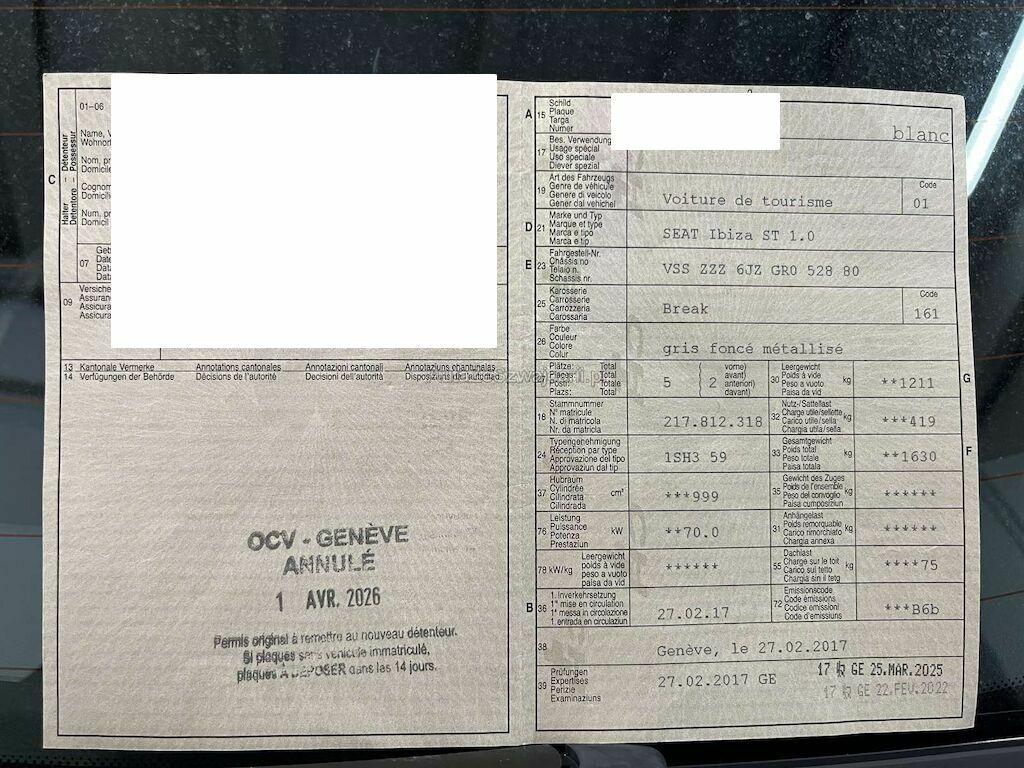 01–06
Name, V
Wohnort
Nom, pr
Domicile
Cognom
Domicilio
Num, pr
Domicil
C
Halter – Détenteur
Detentore – Possessur
07
Geb
Date
Data
Data
09
Versiche
Assuran
Assicura
Assicura
13 Kantonale Vermerke Annotations cantonales Annotazioni cantonali Annotaziuns chantunalas
14 Verfügungen der Behörde Décisions de l'autorité Decisioni dell'autorità Disposiziuns da l'autoritad
OCV - GENÈVE
ANNULÉ
1 AVR. 2026
Permis original à remettre au nouveau détenteur.
Si plaques sans véhicule immatriculé,
plaques A DEPOSER dans les 14 jours.
A
15
Schild
Plaque
Targa
Numer
blanc
17
Bes. Verwendung
Usage spécial
Uso speciale
Diever spezial
19
Art des Fahrzeugs
Genre de véhicule
Genere di veicolo
Gener dal vehichel
Voiture de tourisme
Code
01
D
21
Marke und Typ
Marque et type
Marca e tipo
Marca e tip
SEAT Ibiza ST 1.0
E
23
Fahrgestell-Nr.
Châssis no
Telaio n.
Schassis nr.
VSS ZZZ 6JZ GR0 528 80
25
Karosserie
Carrosserie
Carrozzeria
Carossaria
Break
Code
161
26
Farbe
Couleur
Colore
Colur
gris foncé métallisé
27
Plätze: Total
Places: Total
Posti: Totale
Plazs: Total
5
( vorne)
( avant)
( anteriori)
( davant)
2
30
Leergewicht
Poids à vide
Peso a vuoto
Paisa da vid
kg
**1211
G
18
Stammnummer
N° matricule
N. di matricola
Nr. da matricla
217.812.318
32
Nutz-/Sattellast
Charge utile/sellette
Carico utile/sella
Chargia utila/sella
kg
***419
24
Typengenehmigung
Réception par type
Approvazione del tipo
Approvaziun dal tip
1SH3 59
33
Gesamtgewicht
Poids total
Peso totale
Paisa totala
kg
**1630
F
37
Hubraum
Cylindrée
Cilindrata
Cilindrada
cm³
***999
35
Gewicht des Zuges
Poids de l'ensemble
Peso del convoglio
Paisa cumposiziun
kg
******
76
Leistung
Puissance
Potenza
Prestaziun
kW
**70.0
31
Anhängelast
Poids remorquable
Carico rimorchiato
Chargia annexa
kg
******
78 kW/kg
Leergewicht
poids à vide
peso a vuoto
paisa da vid
******
55
Dachlast
Charge sur le toit
Carico sul tetto
Chargia sin il tetg
kg
****75
B
36
1. Inverkehrsetzung
1re mise en circulation
1a messa in circolazione
1. entrada en circulaziun
27.02.17
72
Emissionscode
Code émissions
Codice emissioni
Code d'emissiuns
***B6b
38
Genève, le 27.02.2017
39
Prüfungen
Expertises
Perizie
Examinaziuns
27.02.2017 GE
17 GE 25.MAR.2025
17 GE 22.FEV.2022